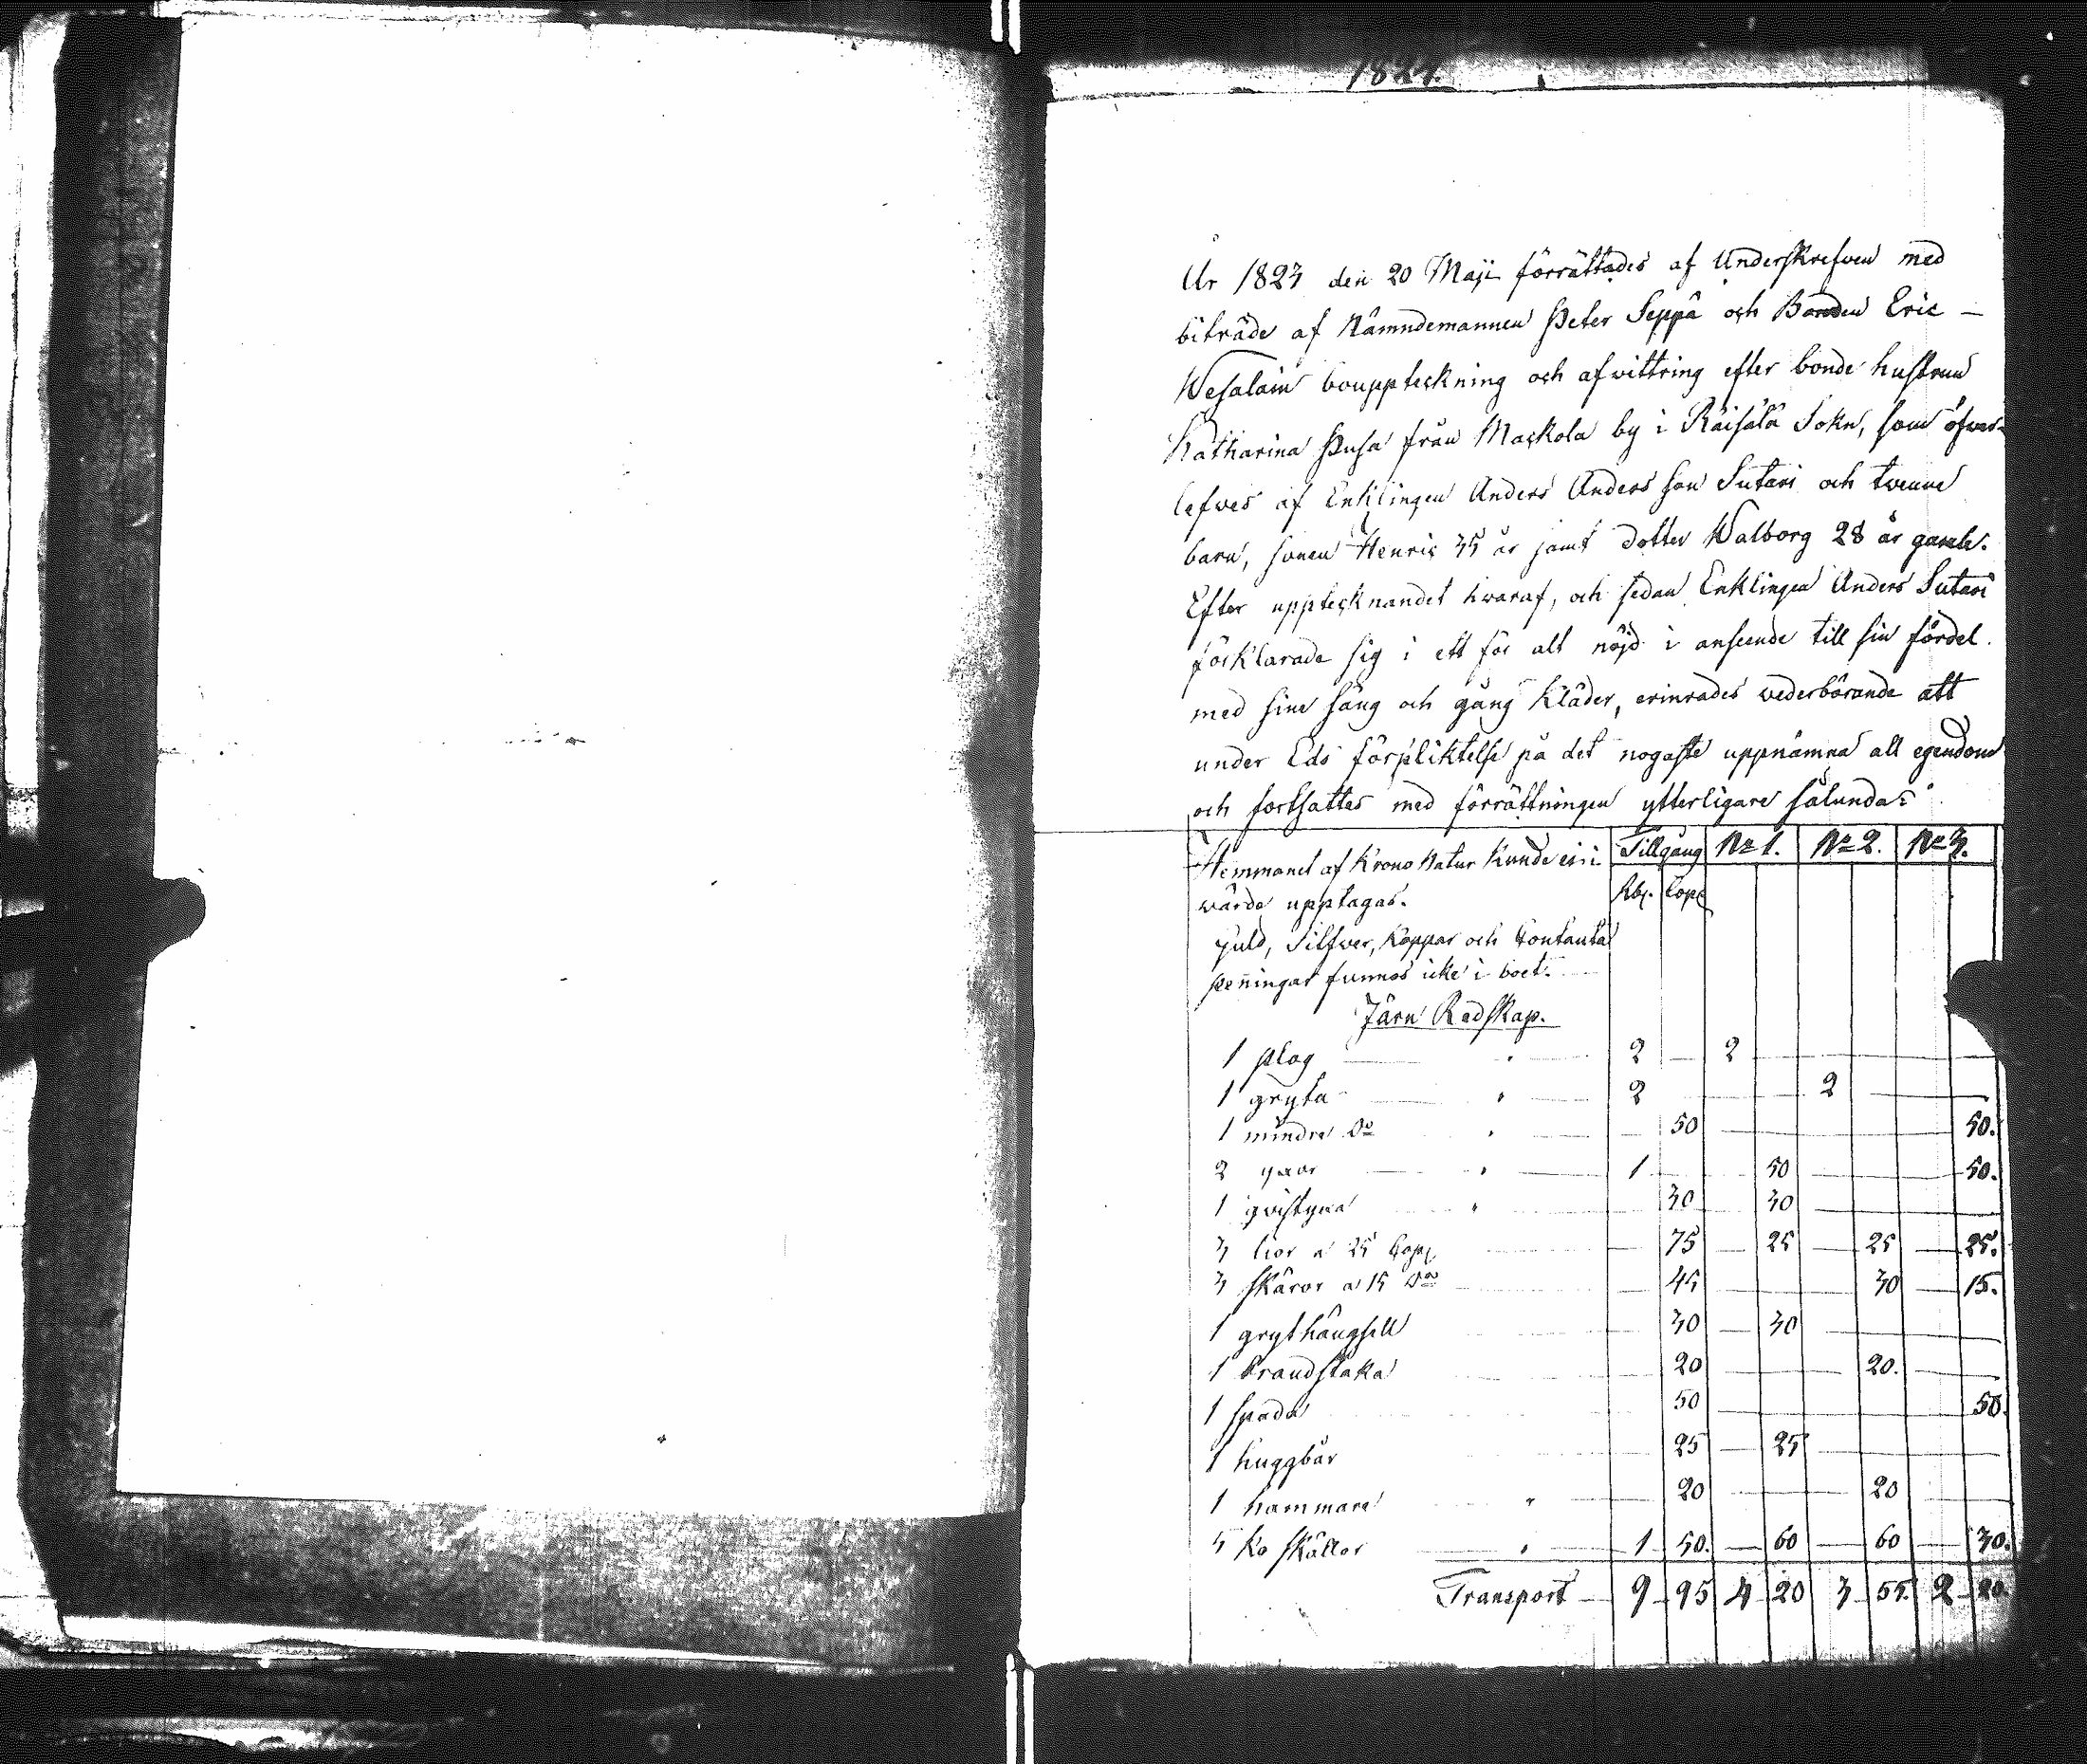 1824.
År 1823 den 20 Maji förrättades af Underskrefven med
biträde af Nämndemannen Peter Seppä och Bonden Eric
Wesalain bouppteckning och afwittring efter bonde hustrun
Katharina Pusa från Mackola by i Räisälä Sokn, som öfwer-
lefwes af Enklingen Anders Andersson Sutari och twenne
barn, sonen Henric 35 år jämt dotter Walborg 28 år gamle.
Efter upptecknandet hwaraf, och sedan Enklingen Anders Sutari
förklarade sig i ett för alt nöjd i anseende till sin fördel
med sine säng och gång kläder, erinrades wederbörande att
under Eds förpliktelse på det nogaste uppnämna all egendom
och fortsattes med förrättningen ytterligare sålunda:
Hemmanet af Krono Natur kunde ei i Tillgång No 1. No 2. No 3.
wärde upptagas. Rbl. Cop.
Guld, Silfwer, Koppar och Contanta
penningar funnos icke i boet.
Järn Redskap.
1 plog 2 — 2
1 gryta 2 2
1 mindre Do — 50 50.
2 yxor 1 50 50.
1 qvistyxa 30 30
3 lior a 25 Cop. — 75 — 25 — 25 — 25.
3 skäror a 15 Do — 45 30 — 15.
1 grythängsell — 30 — 30
1 brandstaka 20 20.
1 spada 50 50.
1 huggbär 25 — 25
1 hammare — 20 20
5 ko skällor 1 50. — 60 — 60 — 30.
Transport — 9 95 4 20 3 55. 2 20.